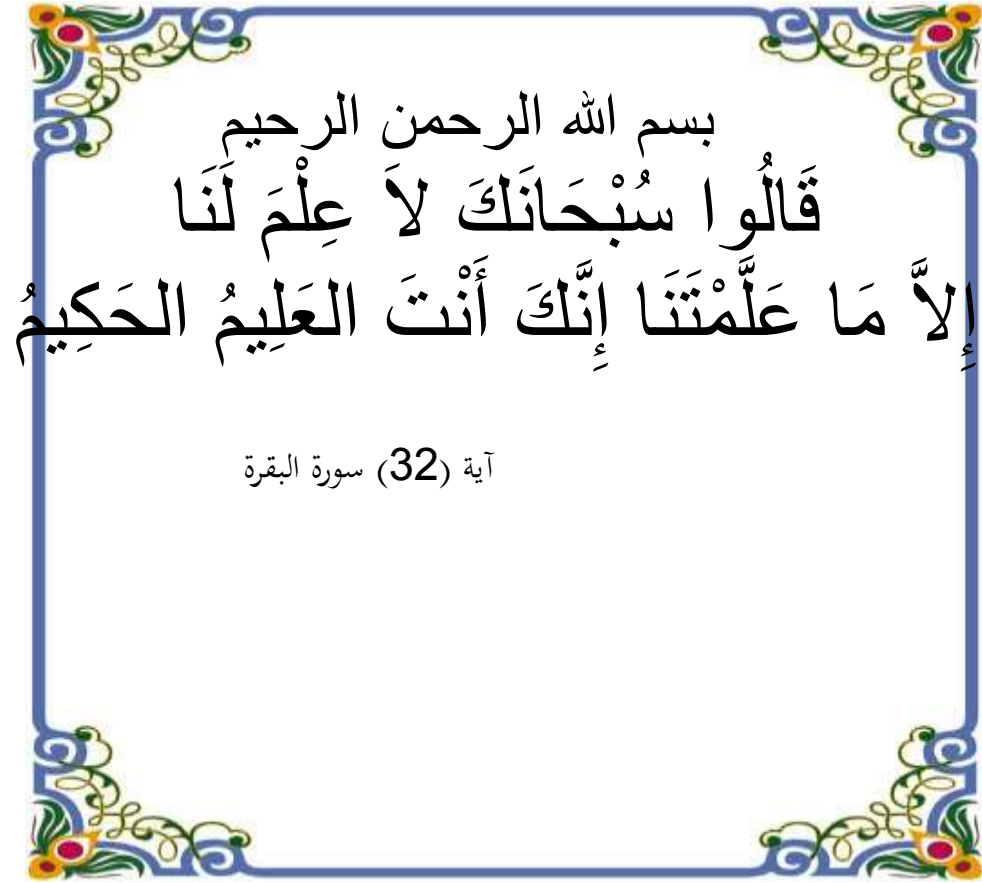 بسم الله الرحمن الرحيم
قَالُوا سُبْحَانَكَ لاَ عِلْمَ لَنَا
إِلاَّ مَا عَلَّمْتَنَا إِنَّكَ أَنْتَ العَلِيمُ الحَكِيمُ
آية (32) سورة البقرة